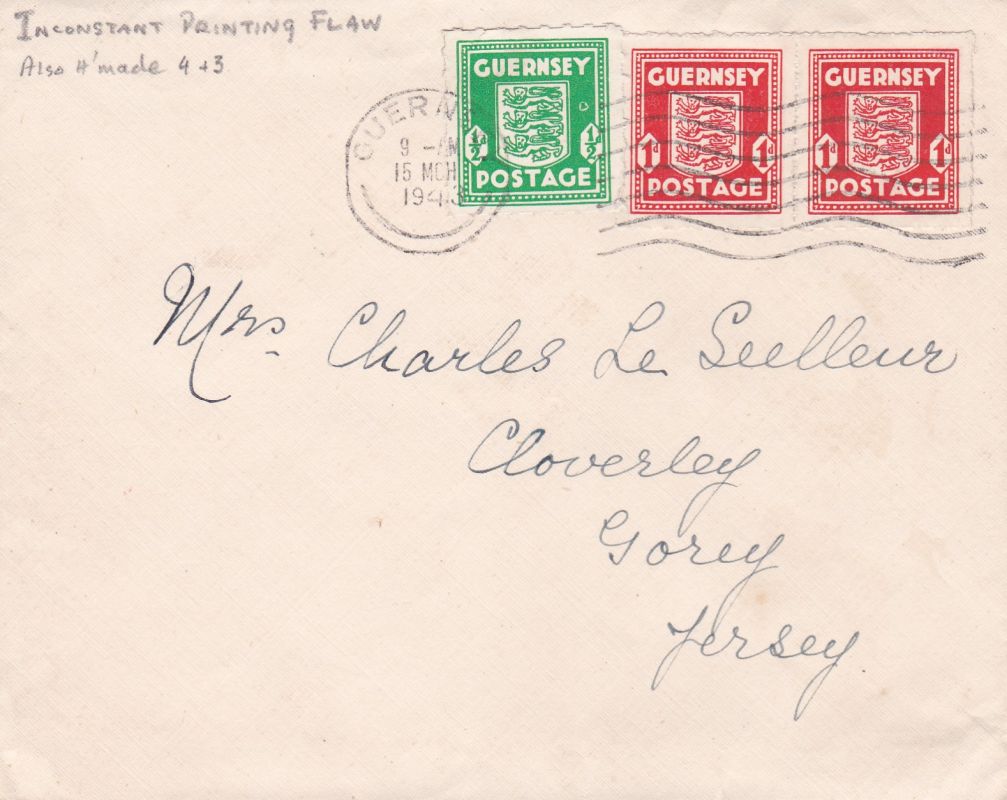 INCONSTANT PRINTING FLAW
Also H'made 4+3
GUERNSEY
½ ½
POSTAGE
GUERNSEY
1d 1d
POSTAGE
GUERNSEY
1d 1d
POSTAGE
GUERN
9 - AM
15 MCH
1943
Mrs Charles Le Seelleur
Cloverley
Gorey
Jersey